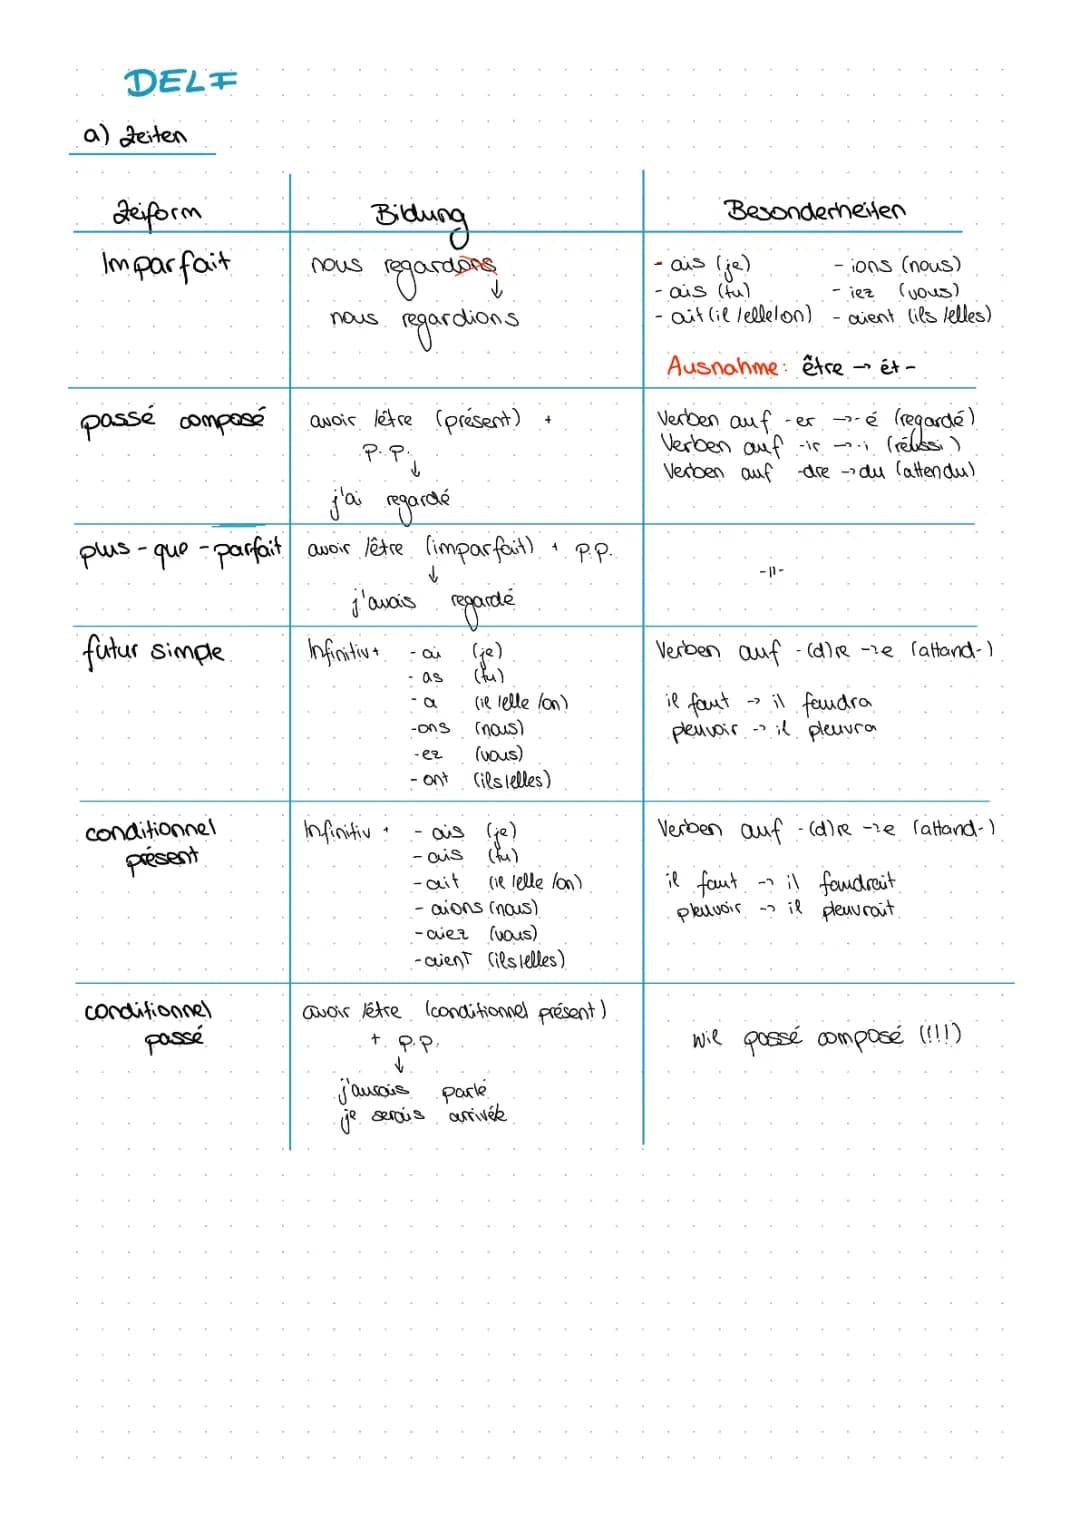 DELF
a) Zeiten
Zeiform Bildung Besonderheiten
Imparfait nous regardons - ais (je) - ions (nous)
- ais (tu) - iez (vous)
nous regardions - ait (il /elle/on) - aient (ils /elles)
Ausnahme: être → ét -
passé composé avoir /être (présent) + Verben auf -er → -é (regardé)
P. P. Verben auf -ir → -i (réussi)
↓ Verben auf -dre → du (attendu)
j'ai regardé
plus - que - parfait avoir /être (imparfait) + P.P.
↓ -||-
j'avais regardé
futur simple Infinitiv + - ai (je) Verben auf -(d)re -re (attand-)
- as (tu)
- a (il /elle /on) il faut → il faudra
-ons (nous) pleuvoir → il pleuvra
-ez (vous)
- ont (ils/elles)
conditionnel Infinitiv + - ais (je) Verben auf -(d)re -re (attand-)
présent - ais (tu)
- ait (il /elle /on) il faut → il faudrait
- aions (nous) pleuvoir → il pleuvrait
- aiez (vous)
- aient (ils/elles)
conditionnel avoir /être (conditionnel présent)
passé + P.P. wie passé composé (!!!)
↓
j'aurais parlé
je serais arrivée